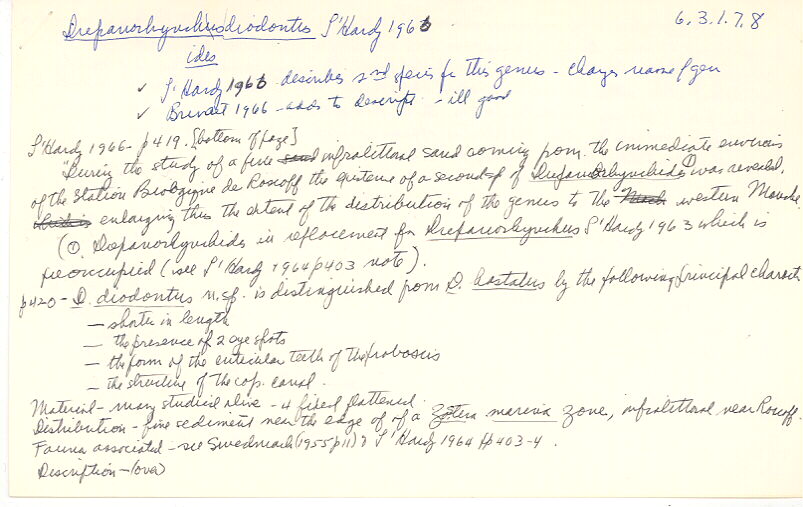 Drepanorhynchus diodontus L'Hardy 1966 6.3.1.7.8
ides
✓ L'Hardy 1966 describes 2nd species for this genus - changes name of gen
✓ Brunet 1966 - adds to descript. - ill good
L'Hardy 1966 - p419. [bottom of page]
"During the study of a fine sand infralittoral sand coming from the immediate environs
of the Station Biologique de Roscoff the existence of a second sp of Drepanorhynchides① was revealed,
enlarging thus the extent of the distribution of the genus to the western Manche.
(①. Drepanorhynchides in replacement for Drepanorhynchus L'Hardy 1963 which is
preoccupied (see L'Hardy 1964 p403 note).
p420 - D. diodontus n.sp. is distinguished from D. hastatus by the following principal charact
- shorter in length
- the presence of 2 eye spots
- the form of the cuticular teeth of the proboscis
- the structure of the cop. canal.
Material - many studied alive - 4 fixed flattened.
Distribution - fine sediment near the edge of of a Zostera marina zone, infralittoral near Roscoff.
Fauna associated - see Swedmark (1955 p11) & L'Hardy 1964 pp403-4.
Description - (over)